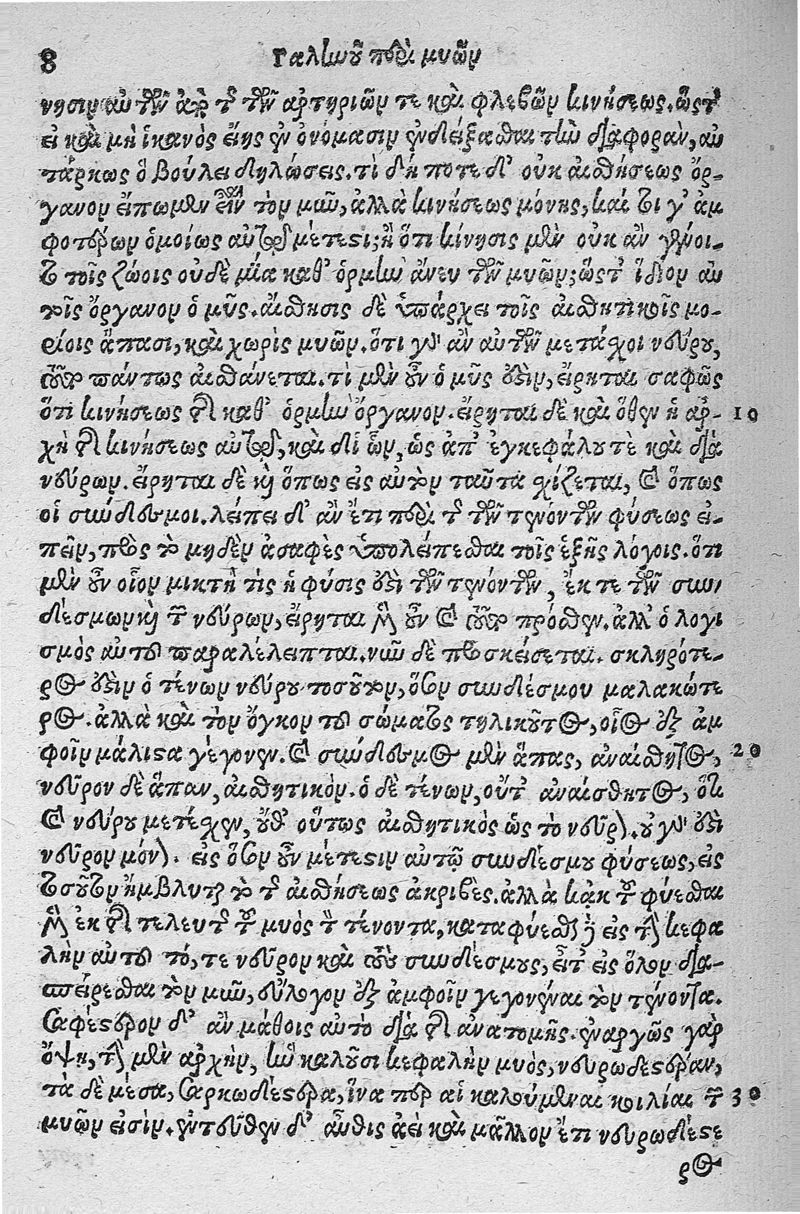 8 Γαληνοῦ περὶ μυῶν
νησιν αὐτῶν ἀπὸ τῆς τῶν ἀρτηριῶν τε καὶ φλεβῶν κινήσεως. ὥστ᾽
εἰ καὶ μὴ ἱκανὸς εἴης ἐν ὀνόμασιν ἐνδείξασθαι τὴν διαφορὰν, αὐ
τάρκως ὃ βούλει δηλώσεις. τὶ δή ποτε δ᾽ οὐκ αἰσθήσεως ὄρ-
γανον εἴπωμεν εἶναι τὸν μῦν, ἀλλὰ κινήσεως μόνης, καί τοι γ᾽ ἀμ
φοτέρων ὁμοίως αὐτοῦ μέτεστι; ἢ ὅτι κίνησις μὲν οὐκ ἂν γένοι-
το τοῖς ζώοις οὐδὲ μία καθ᾽ ὁρμὴν ἄνευ τῶν μυῶν; ὥστ᾽ ἴδιον αὐ
τοῖς ὄργανον ὁ μῦς. αἴσθησις δὲ ὑπάρχει τοῖς αἰσθητικοῖς μο-
ρίοις ἅπασι, καὶ χωρὶς μυῶν. ὅτι γὰρ ἂν αὐτῶν μετάχοι νεύρου,
τοῦτο πάντως αἰσθάνεται. τὶ μὲν οὖν ὁ μῦς ἐστιν, εἴρηται σαφῶς
ὅτι κινήσεως τῆς καθ᾽ ὁρμὴν ὄργανον. εἴρηται δὲ καὶ ὅθεν ἡ ἀρ- 10
χὴ τῆς κινήσεως αὐτοῦ, καὶ δι᾽ ὧν, ὡς ἀπ᾽ ἐγκεφάλου τὲ καὶ διὰ
νεύρων. εἴρηται δὲ καὶ ὅπως εἰς αὐτὸν ταῦτα σχίζεται, καὶ ὅπως
οἱ σύνδεσμοι. λείπει δ᾽ ἂν ἔτι περὶ τῆς τῶν τενόντων φύσεως εἰ-
πεῖν, πρὸς τὸ μηδὲν ἀσαφὲς ὑπολείπεσθαι τοῖς ἑξῆς λόγοις. ὅτι
μὲν οὖν οἷον μικτή τις ἡ φύσις ἐστὶ τῶν τενόντων, ἔκ τε τῶν συν
δέσμων καὶ τῶν νεύρων, εἴρηται μὲν οὖν καὶ τοῦτο πρόσθεν. ἀλλ᾽ ὁ λογι
σμὸς αὐτοῦ παραλέλειπται. νῦν δὲ προσκείσεται. σκληρότε-
ρος ἐστιν ὁ τένων νεύρου τοσοῦτον, ὅσον συνδέσμου μαλακώτε
ρος. ἀλλὰ καὶ τὸν ὄγκον τοῦ σώματος τηλικοῦτος, οἷος ἐξ ἀμ
φοῖν μάλιστα γέγονεν. καὶ σύνδεσμος μὲν ἅπας, ἀναίσθητος, 20
νεῦρον δὲ ἅπαν, αἰσθητικὸν. ὁ δὲ τένων, οὔτ᾽ ἀναίσθητος, ὅτι
καὶ νεύρου μετέχει, οὔθ᾽ οὕτως αἰσθητικὸς ὡς τὸ νεῦρον. οὐ γὰρ ἐστὶ
νεῦρον μόνον. εἰς ὅσον οὖν μέτεστιν αὐτῷ συνδέσμου φύσεως, εἰς
τοσοῦτον ἤμβλυνται τὸ τῆς αἰσθήσεως ἀκριβὲς. ἀλλὰ κἀκ τοῦ φύεσθαι
μὲν ἐκ τῆς τελευτῆς τοῦ μυὸς τὸν τένοντα, καταφύεσθαι δὲ εἰς τὴν κεφα
λὴν αὐτοῦ τό, τε νεῦρον καὶ τοὺς συνδέσμους, εἶτ᾽ εἰς ὅλον δια-
σπείρεσθαι τὸν μῦν, εὔλογον ἐξ ἀμφοῖν γεγονέναι τὸν τένοντα.
Σαφέστερον δ᾽ ἂν μάθοις αὐτὸ διὰ τῆς ἀνατομῆς. ἐναργῶς γὰρ
ὄψῃ, τὴν μὲν ἀρχὴν, ἣν καλοῦσι κεφαλὴν μυὸς, νευρωδεστέραν,
τὰ δὲ μέσα, Σαρκωδέστερα, ἵνα περ αἱ καλούμεναι κοιλίαι τῶν 30
μυῶν εἰσὶν. ἐντεῦθεν δ᾽ αὖθις ἀεὶ καὶ μᾶλλον ἔτι νευρωδέστε
ρος